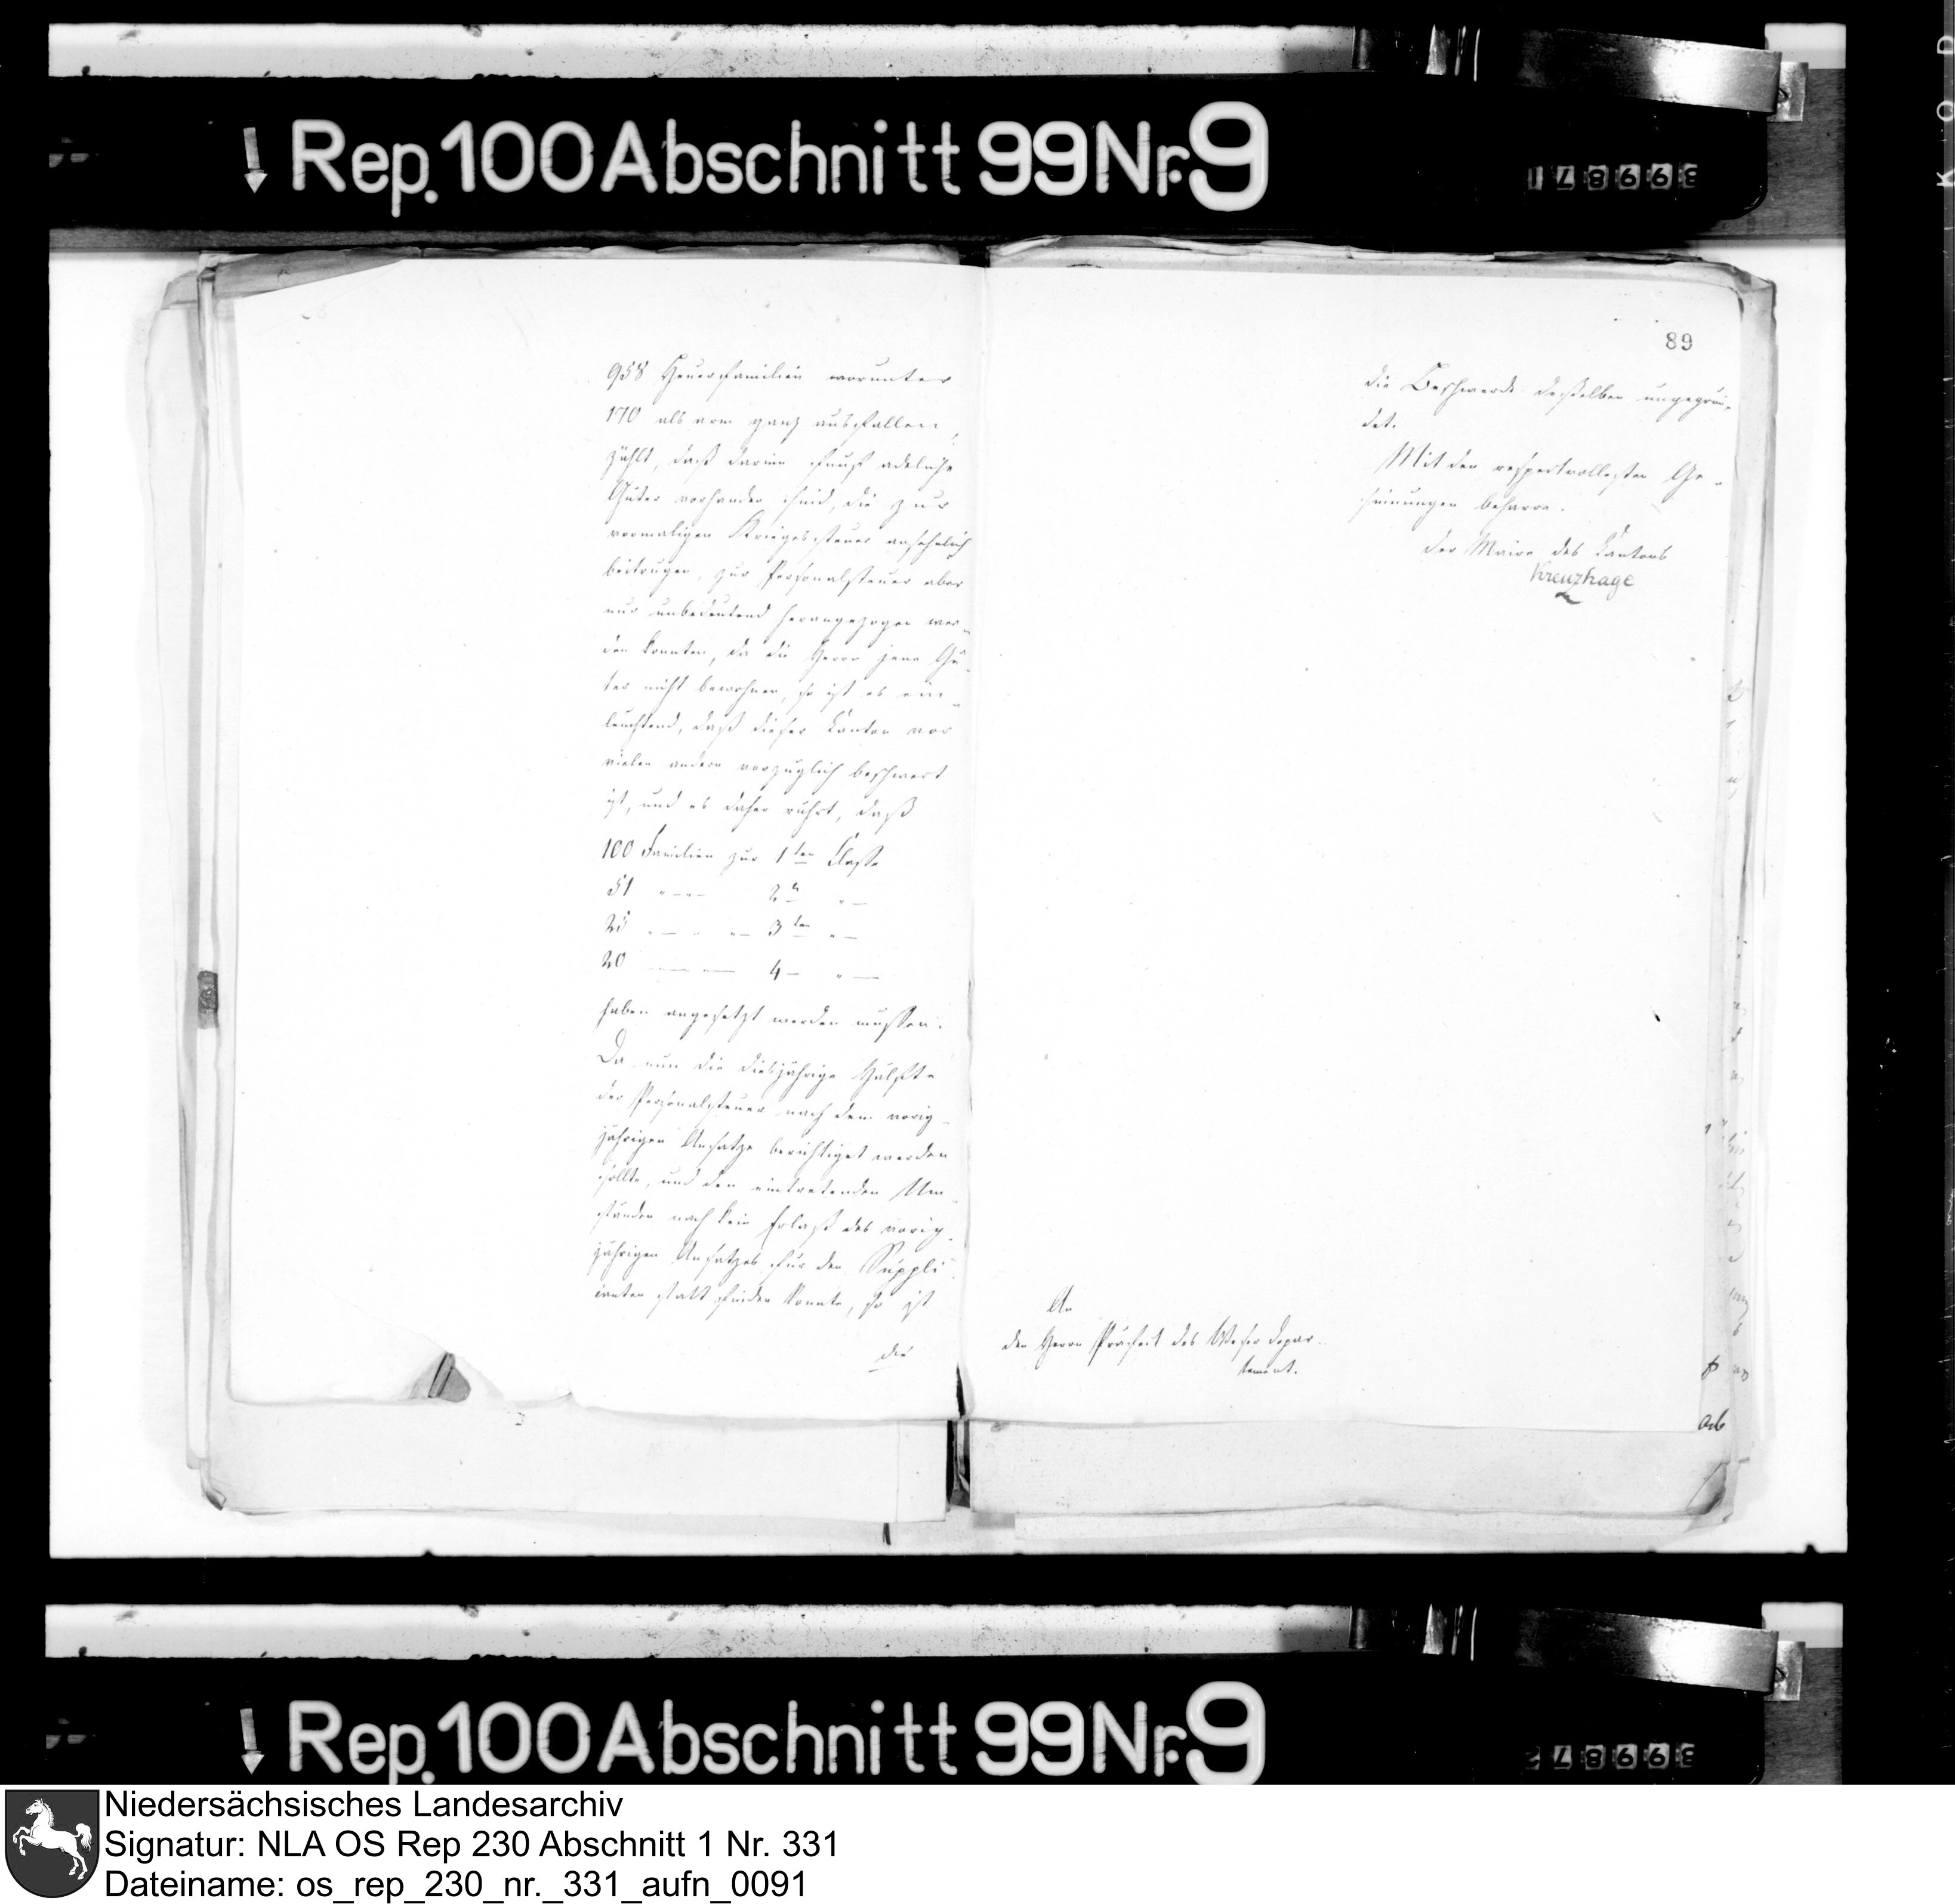 Rep. 100 Abschnitt 99 Nr. 9
958 Heuerfamilien worunter
170 als arm ganz ausfallen,
zählt, daß darinn fünf adeliche
Güter vorhanden sind, die zur
vormaligen Kriegessteuer ansehnlich
beitrugen, zur Personalsteuer aber
nur unbedeutend herangezogen wer-
den konnten, da die Herrn jene Gü-
ter nicht bewohnen, so ist es ein-
leuchtend, daß dieser Canton vor
vielen andern vorzüglich beschwert
ist, und es daher rührt, daß
100 Familien zur 1ten Classe
51 " — 2n " —
25 " — " — 3ten " —
20 — — 4 — " —
haben angesetzt werden müssen.
Da nun die diesjährige Hälfte
der Personalsteuer nach dem vorig-
jährigen Ansatze berichtiget werden
sollte, und den eintretenden Um-
ständen nach kein Erlaß des vorig-
jährigen Ansatzes für den Suppli-
canten statt finden konnte, so ist
die
89
die Beschwerde desselben ungegrün-
det.
Mit den respectvollesten Ge-
sinnungen beharre.
Der Maire des Cantons
Kreuzhage
An
den Herrn Präfect des Weser Depar-
tement.
Rep. 100 Abschnitt 99 Nr. 9
Niedersächsisches Landesarchiv
Signatur: NLA OS Rep 230 Abschnitt 1 Nr. 331
Dateiname: os_rep_230_nr._331_aufn_0091